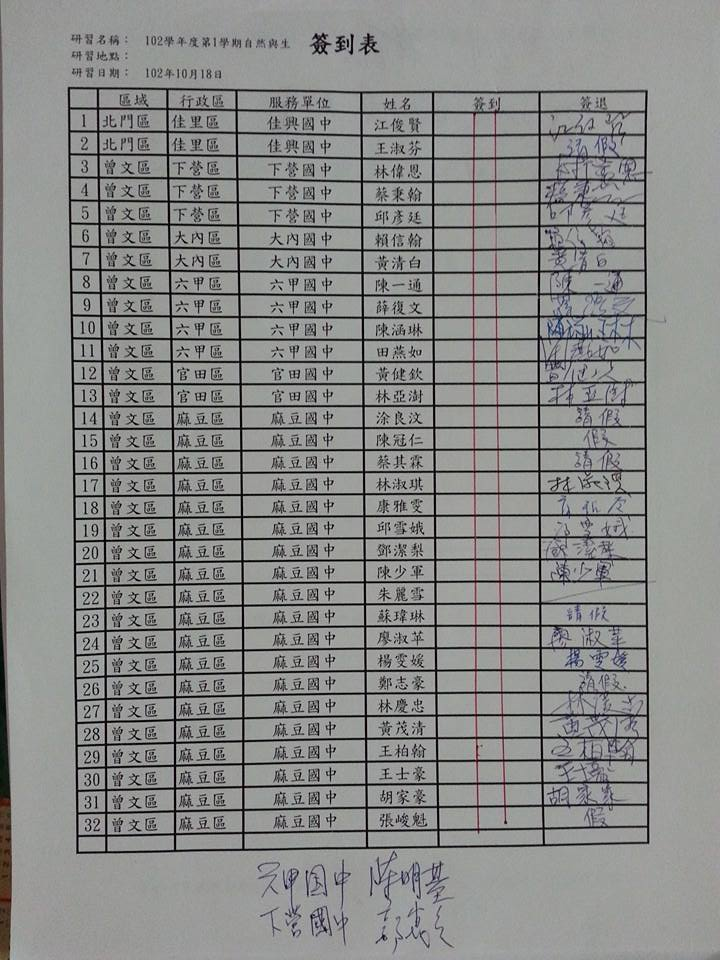 研習名稱： 102學年度第1學期自然與生 簽到表
研習地點：
研習日期： 102年10月18日
區域 行政區 服務單位 姓名 簽到 簽退
1 北門區 佳里區 佳興國中 江俊賢
2 北門區 佳里區 佳興國中 王淑芬 請假
3 曾文區 下營區 下營國中 林偉恩
4 曾文區 下營區 下營國中 蔡秉翰
5 曾文區 下營區 下營國中 邱彥廷
6 曾文區 大內區 大內國中 賴信翰
7 曾文區 大內區 大內國中 黃清白 黃清白
8 曾文區 六甲區 六甲國中 陳一通 陳一通
9 曾文區 六甲區 六甲國中 薛復文
10 曾文區 六甲區 六甲國中 陳涵琳 陳涵琳
11 曾文區 六甲區 六甲國中 田燕如 田燕如
12 曾文區 官田區 官田國中 黃健欽
13 曾文區 官田區 官田國中 林亞澍 林亞澍
14 曾文區 麻豆區 麻豆國中 涂良汶 請假
15 曾文區 麻豆區 麻豆國中 陳冠仁 假
16 曾文區 麻豆區 麻豆國中 蔡其霖 請假
17 曾文區 麻豆區 麻豆國中 林淑琪 林淑琪
18 曾文區 麻豆區 麻豆國中 康雅雯
19 曾文區 麻豆區 麻豆國中 邱雪娥 邱雪娥
20 曾文區 麻豆區 麻豆國中 鄧潔梨
21 曾文區 麻豆區 麻豆國中 陳少軍 陳少軍
22 曾文區 麻豆區 麻豆國中 朱麗雪
23 曾文區 麻豆區 麻豆國中 蘇瑋琳 請假
24 曾文區 麻豆區 麻豆國中 廖淑苹 廖淑苹
25 曾文區 麻豆區 麻豆國中 楊雯媛 楊雯媛
26 曾文區 麻豆區 麻豆國中 鄭志豪 請假
27 曾文區 麻豆區 麻豆國中 林慶忠 林慶忠
28 曾文區 麻豆區 麻豆國中 黃茂清 黃茂清
29 曾文區 麻豆區 麻豆國中 王柏翰 王柏翰
30 曾文區 麻豆區 麻豆國中 王士豪 王士豪
31 曾文區 麻豆區 麻豆國中 胡家豪 胡家豪
32 曾文區 麻豆區 麻豆國中 張峻魁 假
六甲国中 陳明基
下營國中